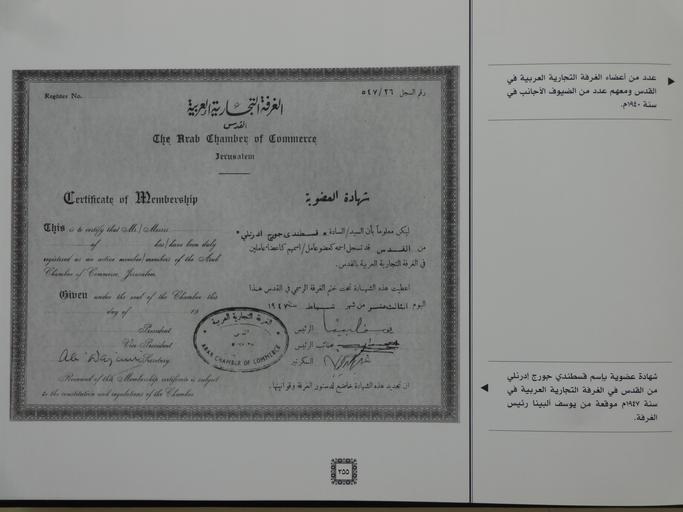 Register No.
رقم السجل ٥٤٧/٢٦
الغرفة التجارية العربية
القدس
The Arab Chamber of Commerce
Jerusalem
Certificate of Membership
شهادة العضوية
This is to certify that Mr./Messrs
of has/have been duly
registered as an active member/members of the Arab
Chamber of Commerce, Jerusalem.
Given under the seal of the Chamber this
day of 19
President
Vice President
Secretary
Renewal of this Membership certificate is subject
to the constitution and regulations of the Chamber
ليكن معلوماً بأن السيد/السادة قسطندي جورج ادرنلي
من القدس قد تسجل اسمه كعضو عامل/اسمهم كاعضاء عاملين
في الغرفة التجارية العربية بالقدس.
اعطيت هذه الشهادة تحت ختم الغرفة الرسمي في القدس هذا
اليوم الثالث عشر من شهر شباط سنة ١٩٤٧
الرئيس
نائب الرئيس
السكرتير
ان تجديد هذه الشهادة خاضع لدستور الغرفة وقوانينها.
الغرفة التجارية العربية
القدس
ARAB CHAMBER OF COMMERCE
عدد من أعضاء الغرفة التجارية العربية في
القدس ومعهم عدد من الضيوف الأجانب في
سنة ١٩٤٠م.
شهادة عضوية بإسم قسطندي جورج إدرنلي
من القدس في الغرفة التجارية العربية في
سنة ١٩٤٧م موقعة من يوسف ألبينا رئيس
الغرفة.
٣٥٥